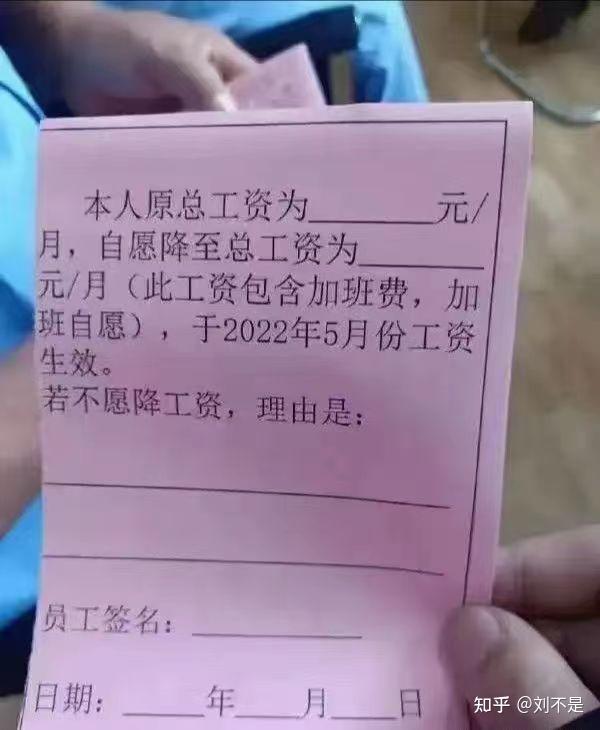 本人原总工资为_______元/
月，自愿降至总工资为_______
元/月（此工资包含加班费，加
班自愿），于2022年5月份工资
生效。
若不愿降工资，理由是：
员工签名：__________
日期：_____年____月____日
知乎 @刘不是